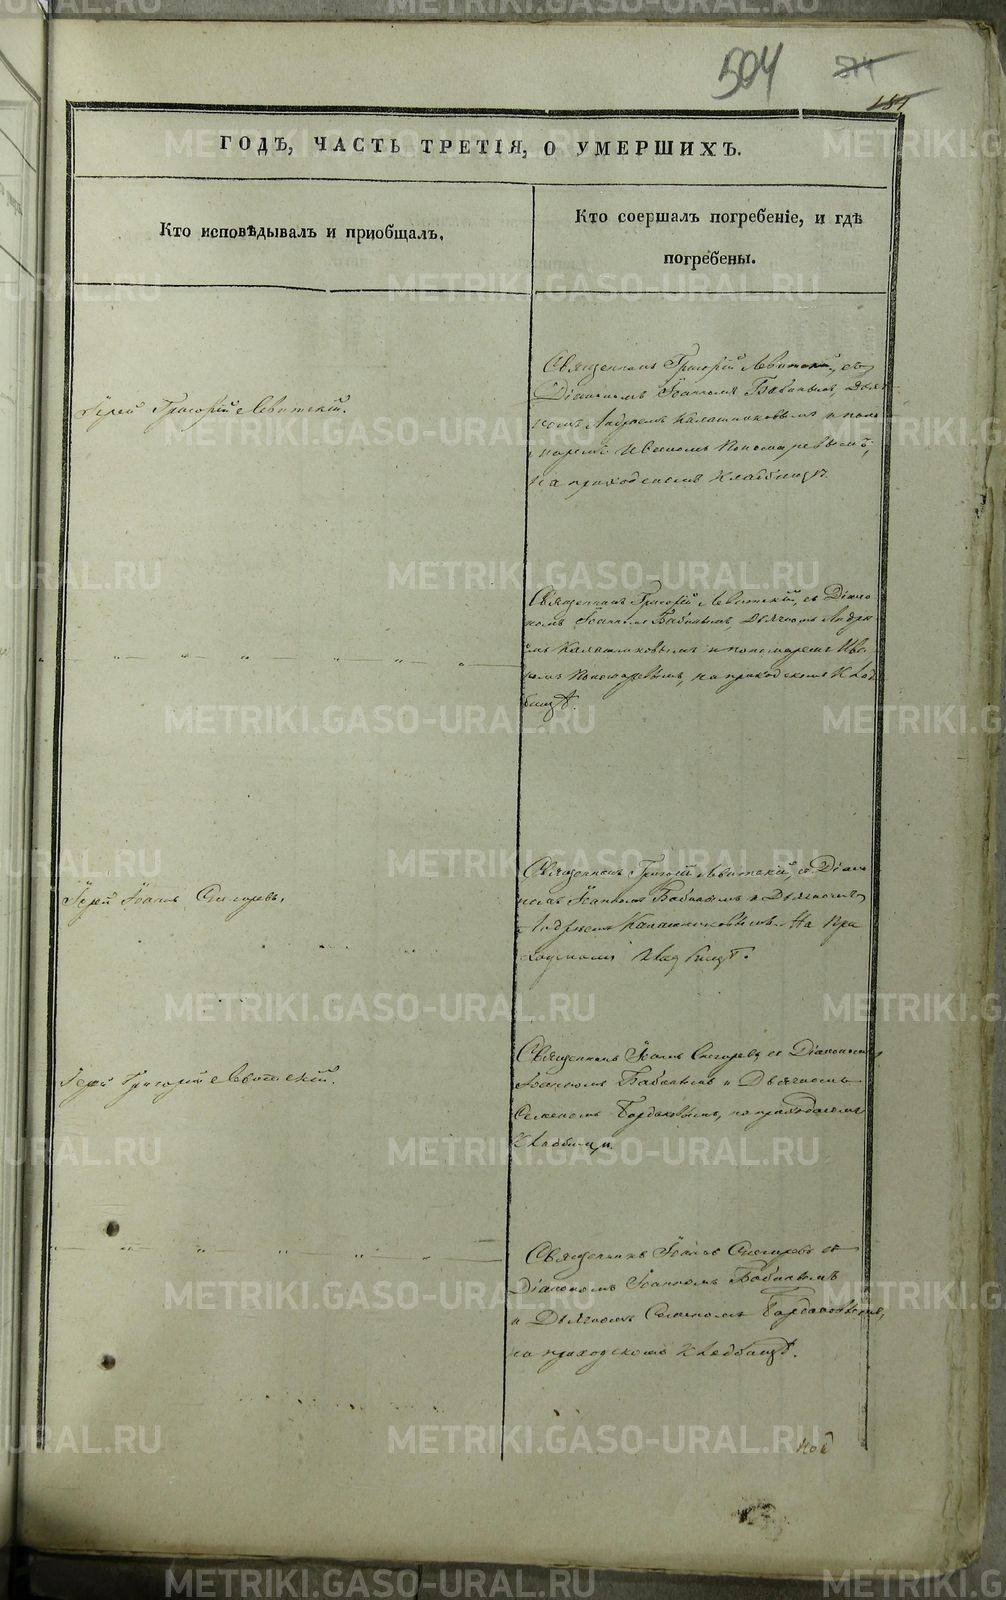 504
574
187
ГОДЪ, ЧАСТЬ ТРЕТІЯ, О УМЕРШИХЪ.
Кто исповѣдывалъ и приобщалъ.
Кто соершалъ погребеніе, и гдѣ
погребены.
Іерей Григорій Левитскій.
Священникъ Григорій Левитскій, съ
Діакономъ Іоанномъ Бабинымъ, Дьяч-
комъ Андреемъ Калашниковымъ и поно-
маремъ Иваномъ Пономаревымъ,
на приходскомъ Кладбищѣ.
Священникъ Григорій Левитскій, съ Діако-
номъ Іоанномъ Бабинымъ, Дьячкомъ Андре-
емъ Калашниковымъ и пономаремъ Ива-
номъ Пономаревымъ, на приходскомъ Клад-
бищѣ.
Іерей Іоаннъ Снегиревъ.
Священникъ Григорій Левитскій, съ Діако-
номъ Іоанномъ Бабинымъ и Дьячкомъ
Андреемъ Калашниковымъ. На При-
ходскомъ Кладбищѣ.
Іерей Григорій Левитскій.
Священникъ Іоаннъ Снегиревъ съ Діакономъ
Іоанномъ Бабинымъ и Дьячкомъ
Семеномъ, на приходскомъ
Кладбищѣ.
Священникъ Іоаннъ Снегиревъ съ
Діакономъ Іоанномъ Бабинымъ
и Дьячкомъ Семеномъ
на приходскомъ Кладбищѣ.
METRIKI.GASO-URAL.RU